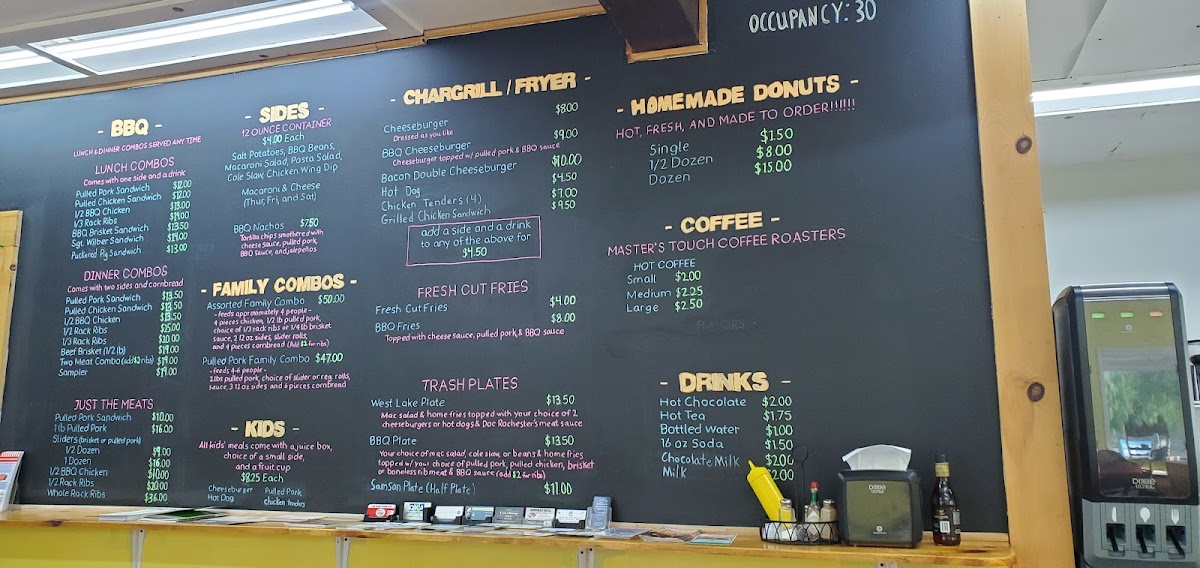 OCCUPANCY: 30
- BBQ -
LUNCH & DINNER COMBOS SERVED ANY TIME
LUNCH COMBOS
Comes with one side and a drink
Pulled Pork Sandwich $12.00
Pulled Chicken Sandwich $12.00
1/2 BBQ Chicken $13.00
1/3 Rack Ribs $19.00
BBQ Brisket Sandwich $13.50
Sgt. Wilber Sandwich $14.00
Puckered Pig Sandwich $13.00
DINNER COMBOS
Comes with two sides and cornbread
Pulled Pork Sandwich $13.50
Pulled Chicken Sandwich $13.50
1/2 BBQ Chicken $13.50
1/2 Rack Ribs $25.00
1/3 Rack Ribs $20.00
Beef Brisket (1/2 lb) $19.00
Two Meat Combo (add $2 ribs) $19.00
Sampler $19.00
JUST THE MEATS
Pulled Pork Sandwich $10.00
1 lb Pulled Pork $16.00
Sliders (brisket or pulled pork)
1/2 Dozen $9.00
1 Dozen $16.00
1/2 BBQ Chicken $10.00
1/2 Rack Ribs $20.00
Whole Rack Ribs $36.00
- SIDES -
12 OUNCE CONTAINER
$4.00 Each
Salt Potatoes, BBQ Beans,
Macaroni Salad, Pasta Salad,
Cole Slaw, Chicken Wing Dip
Macaroni & Cheese
(Thur, Fri, and Sat)
BBQ Nachos $7.50
Tortilla chips smothered with
cheese sauce, pulled pork,
BBQ sauce, and jalepeños
- FAMILY COMBOS -
Assorted Family Combo $50.00
- feeds approximately 4 people -
4 pieces chicken, 1/2 lb pulled pork,
choice of 1/3 rack ribs or 1/4 lb brisket
sauce, 2 12 oz sides, slider rolls,
and 4 pieces cornbread (Add $2 for ribs)
Pulled Pork Family Combo $47.00
- feeds 4-6 people -
2 lbs pulled pork, choice of slider or reg. rolls,
sauce, 3 12 oz sides and 6 pieces cornbread
- KIDS -
All kids' meals come with a juice box,
choice of a small side,
and a fruit cup
$8.25 Each
Cheeseburger Pulled Pork
Hot Dog Chicken Tenders
- CHARGRILL / FRYER -
Cheeseburger $8.00
Dressed as you like
BBQ Cheeseburger $9.00
Cheeseburger topped w/ pulled pork & BBQ sauce
Bacon Double Cheeseburger $10.00
Hot Dog $4.50
Chicken Tenders (4) $7.00
Grilled Chicken Sandwich $9.50
add a side and a drink
to any of the above for
$4.50
FRESH CUT FRIES
Fresh Cut Fries $4.00
BBQ Fries $8.00
Topped with cheese sauce, pulled pork, & BBQ sauce
TRASH PLATES
West Lake Plate $13.50
Mac salad & home fries topped with your choice of 2
cheeseburgers or hot dogs & Doc Rochester's meat sauce
BBQ Plate $13.50
Your choice of mac salad, cole slaw, or beans & home fries
topped w/ your choice of pulled pork, pulled chicken, brisket
or boneless rib meat & BBQ sauce (add $2 for ribs)
SamSon Plate (Half Plate) $11.00
- HOMEMADE DONUTS -
HOT, FRESH, AND MADE TO ORDER!!!!!!
Single $1.50
1/2 Dozen $8.00
Dozen $15.00
- COFFEE -
MASTER'S TOUCH COFFEE ROASTERS
HOT COFFEE
Small $2.00
Medium $2.25
Large $2.50
FLAVORS
- DRINKS -
Hot Chocolate $2.00
Hot Tea $1.75
Bottled Water $1.00
16 oz Soda $1.50
Chocolate Milk $2.00
Milk $2.00
DIXIE
ULTRA
DIXIE
ULTRA